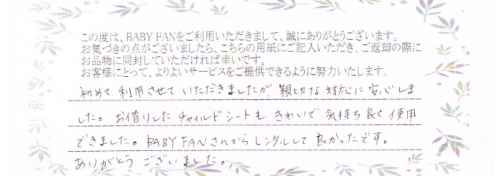 この度は、BABY FANをご利用いただきまして、誠にありがとうございます。
お気づきの点がございましたら、こちらの用紙にご記入いただき、ご返却の際に
お品物に同封していただければ幸いです。
お客様にとって、よりよいサービスをご提供できるように努力いたします。
初めて利用させていただきましたが、親切な対応に安心しま
した。お借りしたチャイルドシートもきれいで気持ち良く使用
できました。BABY FANさんからレンタルして良かったです。
ありがとうございました。